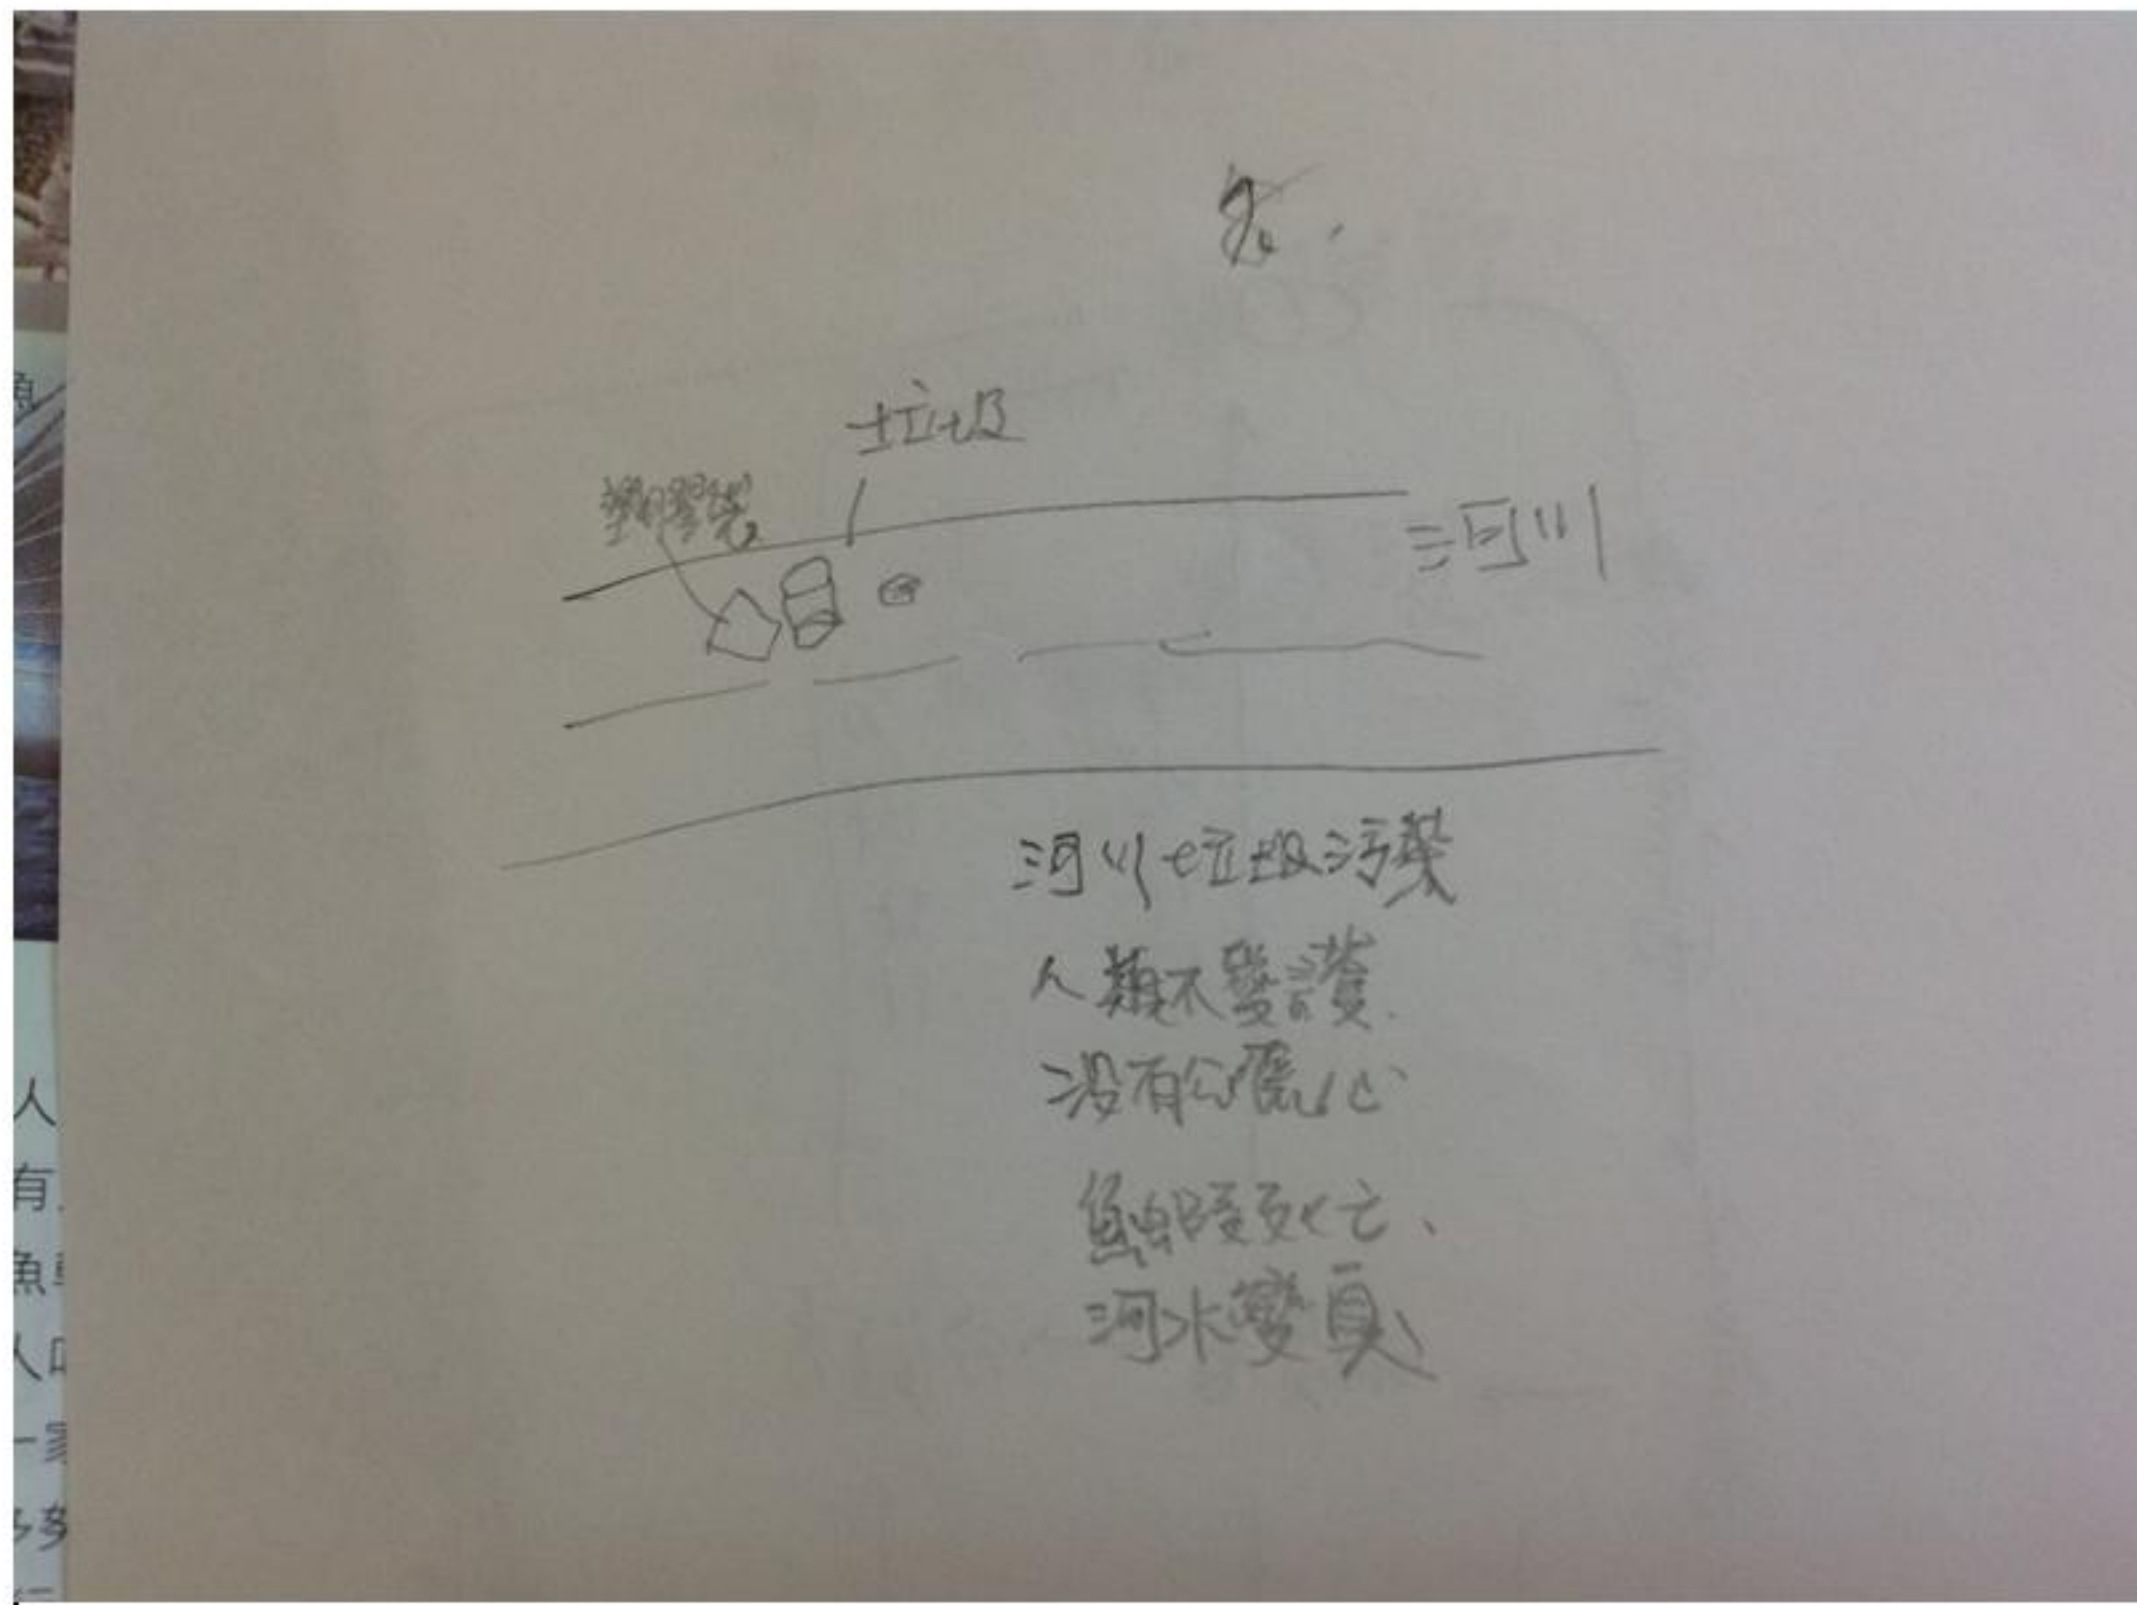 垃圾
塑膠袋
河川
河川垃圾污染
人類不愛護
沒有公德心
魚蝦死亡、
河水變臭
魚
人
有
魚
人口
一家
多努